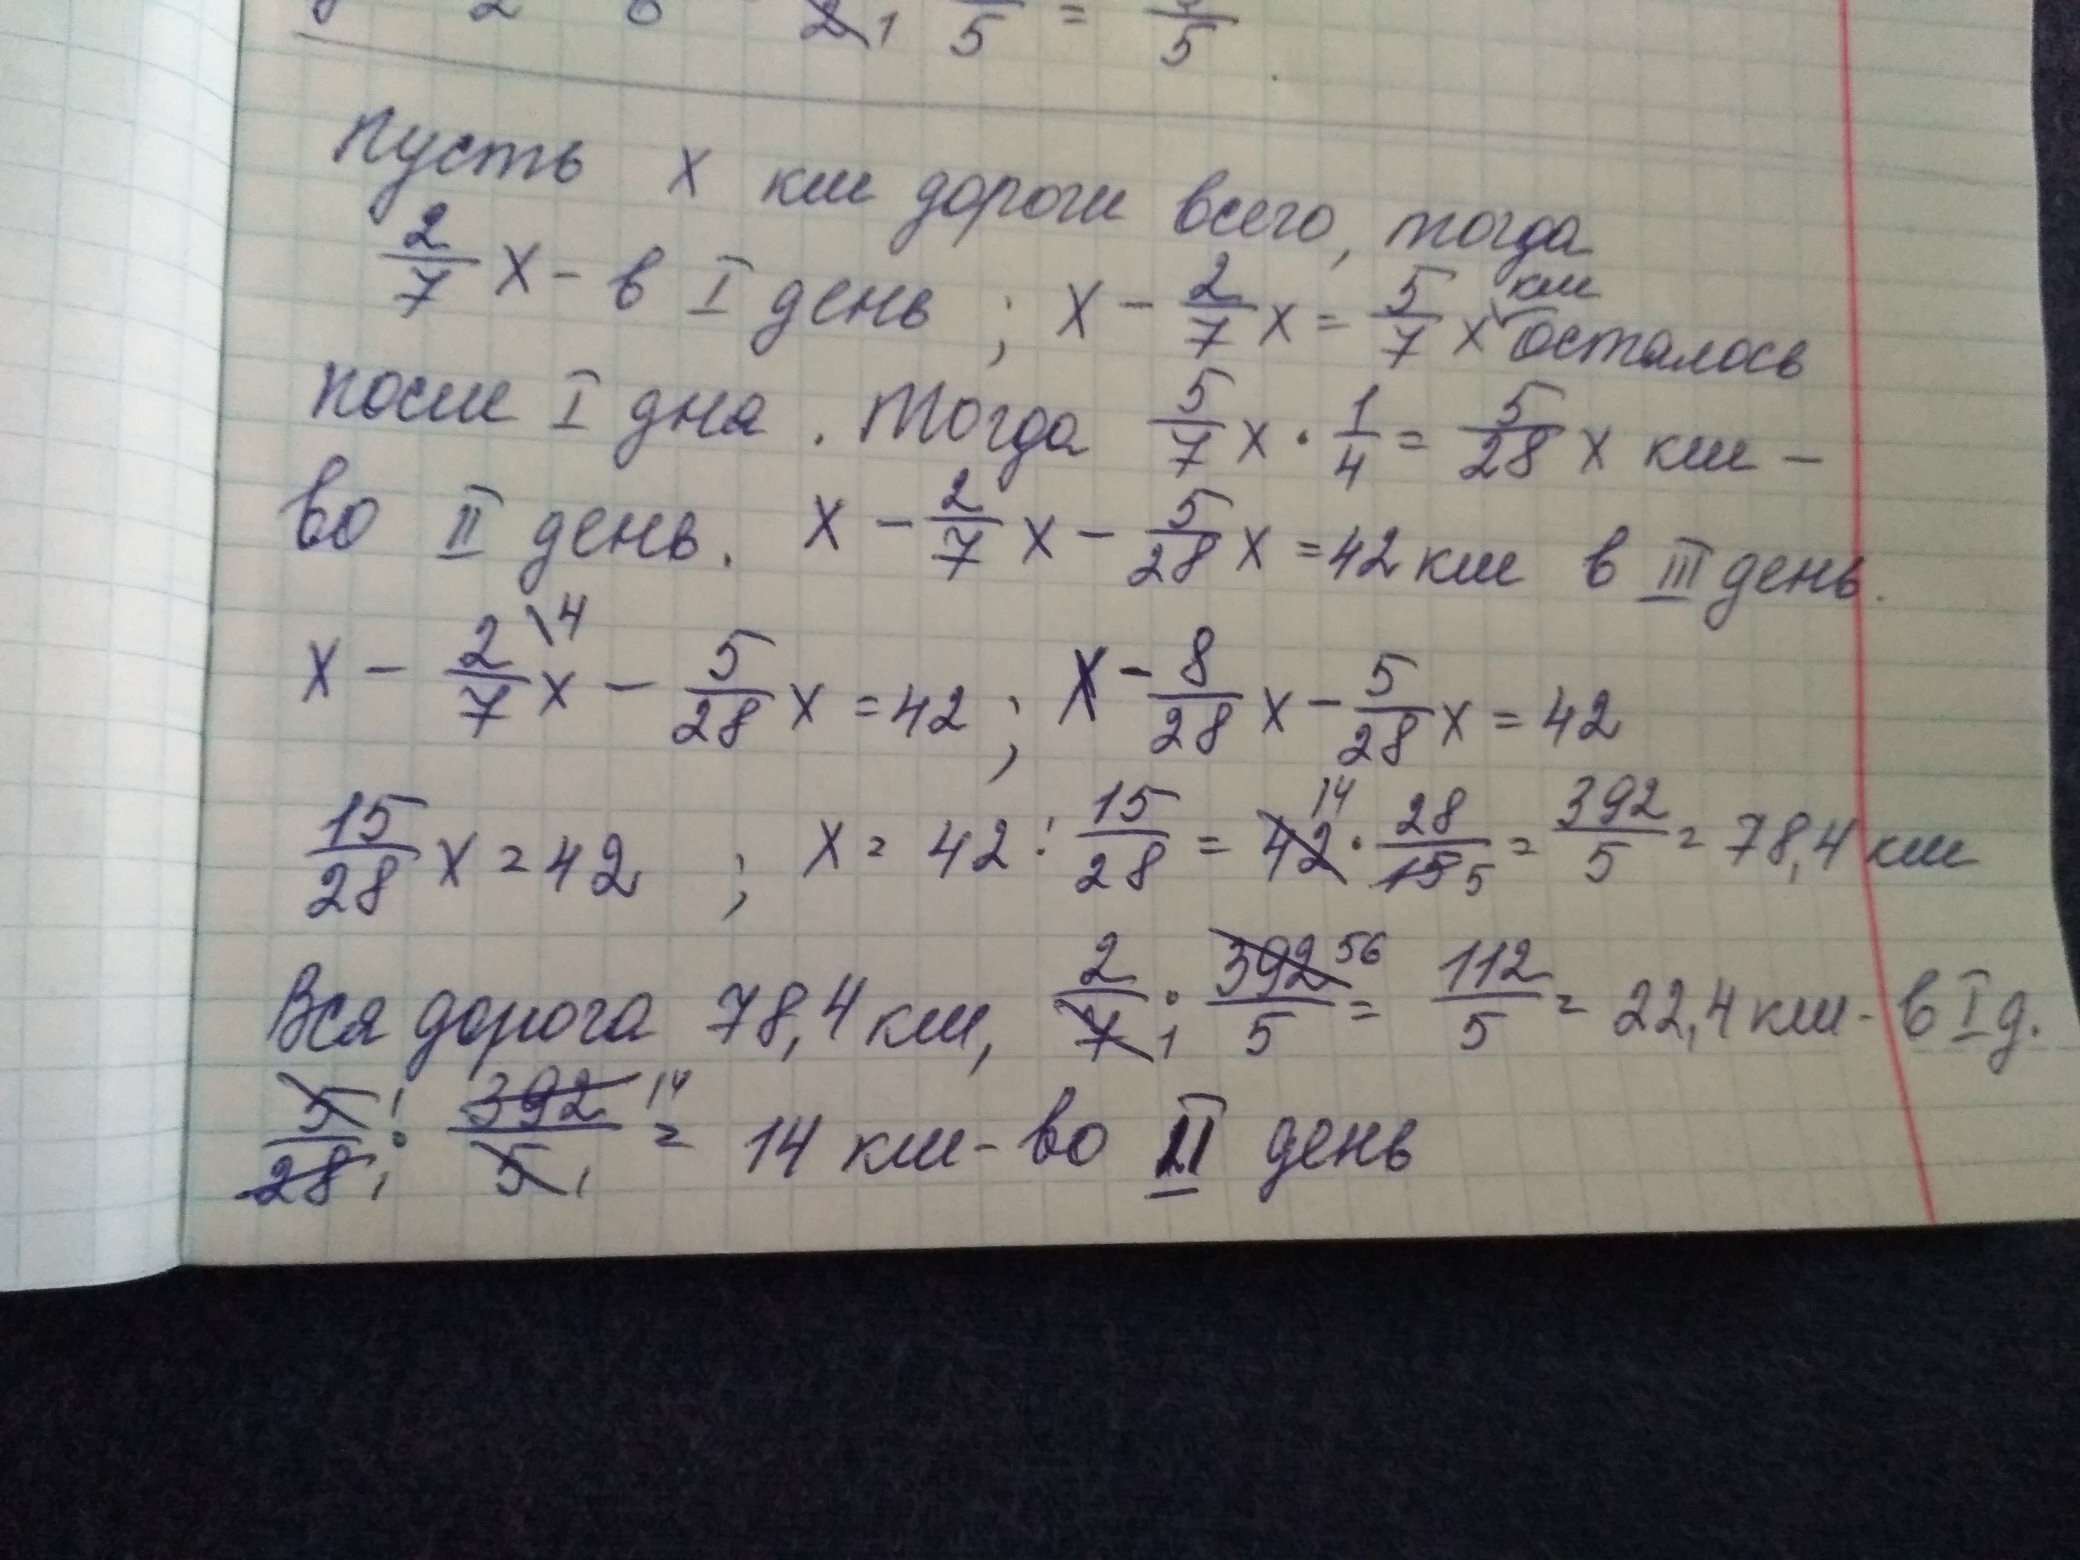 2 1 5 = 5
Пусть х км дороги всего, тогда
2/7 х - в I день ; х - 2/7 х = 5/7 х км осталось
после I дна. Тогда 5/7 х · 1/4 = 5/28 х км -
во II день. х - 2/7 х - 5/28 х = 42 км в III день.
х - 2/7 \4 х - 5/28 х = 42 ; х - 8/28 х - 5/28 х = 42
15/28 х = 42 ; х = 42 : 15/28 = 42 14 · 28/15 5 = 392/5 = 78,4 км
Вся дорога 78,4 км, 2/7 1 : 392 56/5 = 112/5 = 22,4 км - в I д.
5 1/28 1 : 392 14/5 1 = 14 км - во II день